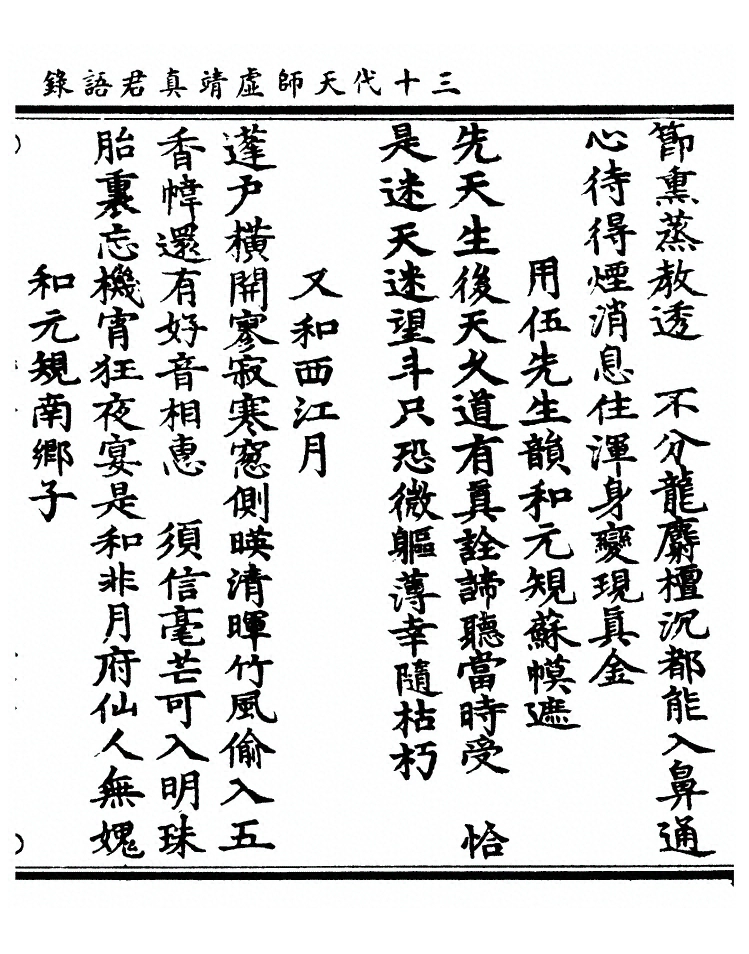 三十代天師虛靖真君語錄
節熏蒸教透　不分龍麝檀沉都能入鼻通
心待得煙消息住渾身變現真金
用伍先生韻和元規蘇幙遮
先天生後天火道有真詮諦聽當時受　恰
是迷天迷望斗只恐微軀薄幸隨枯朽
又和西江月
蓬戶橫開寥寂寒窓側暎清暉竹風偷入五
香幃還有好音相惠　須信毫芒可入明珠
胎裏忘機宵狂夜宴是和非月府仙人無媿
和元規南鄉子